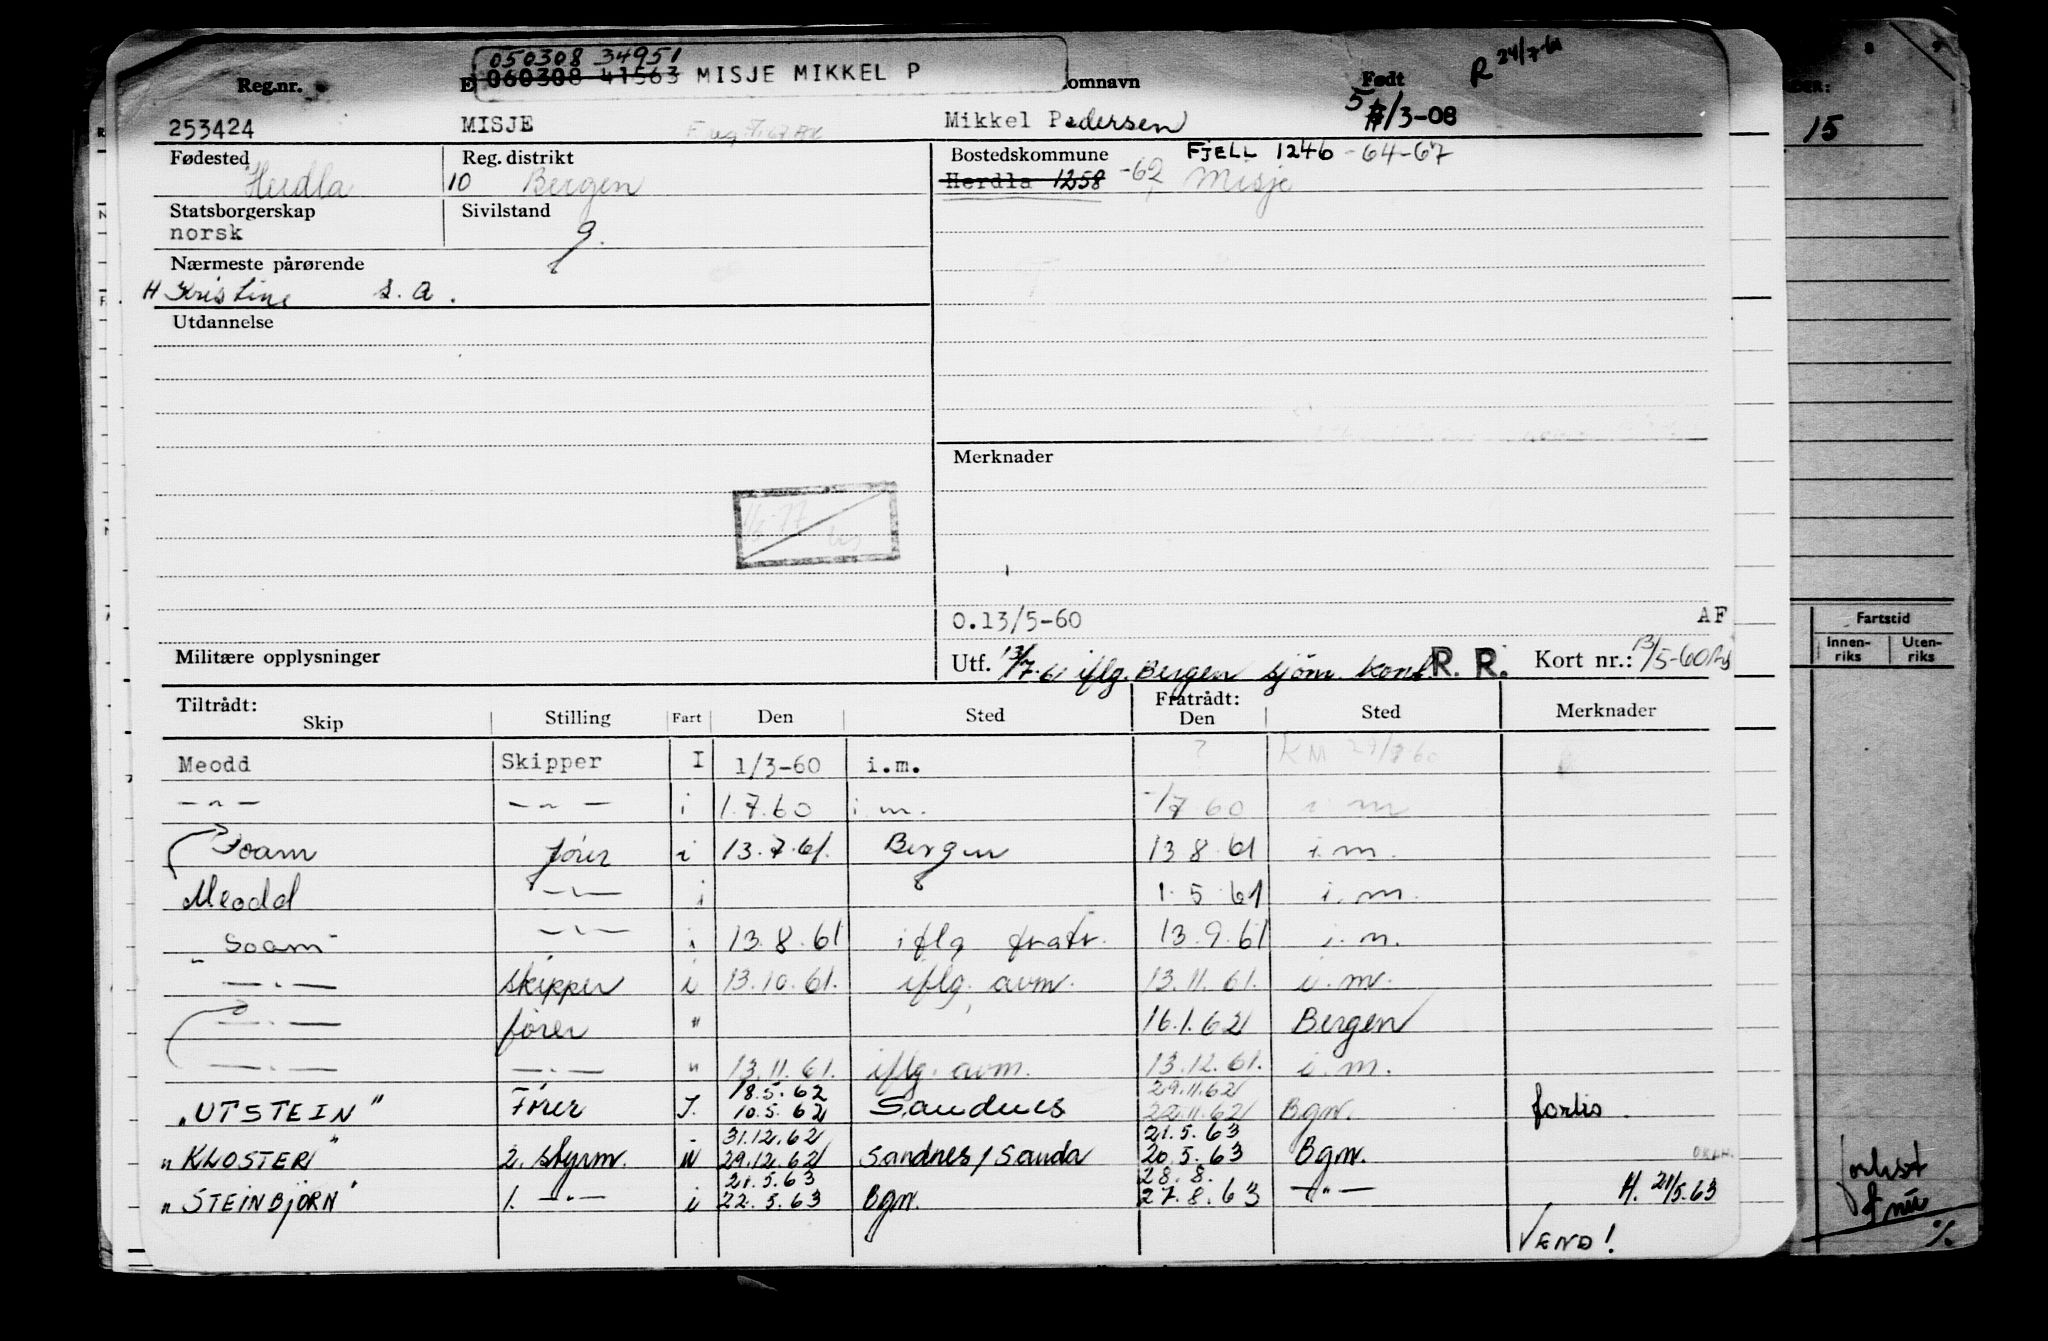 050308 34951
060308 41563 MISJE MIKKEL P
R 24/7-61
Reg.nr.
omnavn
Født
253424
MISJE
Mikkel Pedersen
5/3-08
15
Fødested
Herdla
Reg. distrikt
10 Bergen
Bostedskommune
FJELL 1246 -64-67
Herdla 1258 -62 Misje
Statsborgerskap
norsk
Sivilstand
g.
Nærmeste pårørende
H Kristine s. a.
Utdannelse
Merknader
O.13/5-60
AF
Militære opplysninger
Utf. 13/7.61 iflg. Bergen sjøm. kont. R. R.
Kort nr.: 13/5-60
Fartstid
Innen-riks
Uten-riks
Tiltrådt:
Fratrådt:
Skip Stilling Fart Den Sted Den Sted Merknader
Meodd Skipper I 1/3-60 i.m. ?
— " — — " — i 1.7.60 i m. 1/7 60 i m
Soam fører i 13.7.61. Bergen 13 8.61 i.m.
Meodd — " — i 1.5 61 i.m.
"Soam" — " — i 13.8.61 iflg fratr. 13.9.61 i.m.
— " — skipper i 13.10.61. iflg. avm. 13.11.61. i.m.
— " — fører " 16.1.62 Bergen
— " — — " — " 13.11.61. iflg. avm. 13.12.61. i.m.
18.5.62 29.11.62
"UTSTEIN" Fører I. 10.5.62 Sandnes 22.11.62 Bgn. forlis.
31.12.62 21.5.63
"KLOSTER" 2. styrm. i 29.12.62 Sandnes/Sauda 20.5.63 Bgn.
21.5.63 28.8.
"STEINBJØRN" 1. — " — i 22.5.63 Bgn. 27.8.63 — " — H. 21/5.63
VEND!